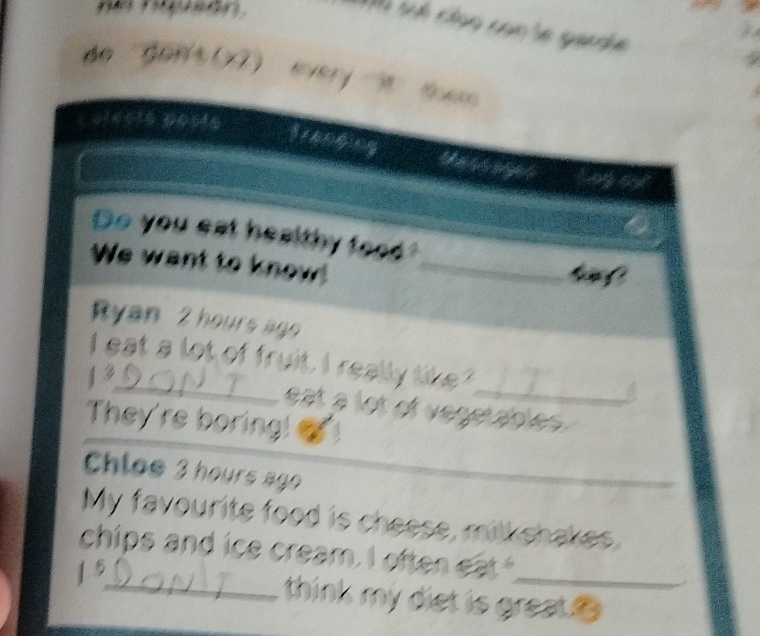 do don't (x2) every it them
Latests posts Trending Messages Log out
Do you eat healthy food ¹__________ day?
We want to know!
Ryan 2 hours ago
I eat a lot of fruit. I really like ² IT !
I ³ DON'T eat a lot of vegetables.
They're boring!
Chloe 3 hours ago
My favourite food is cheese, milkshakes,
chips and ice cream. I often eat ⁴__________
I ⁵ DON'T think my diet is great.